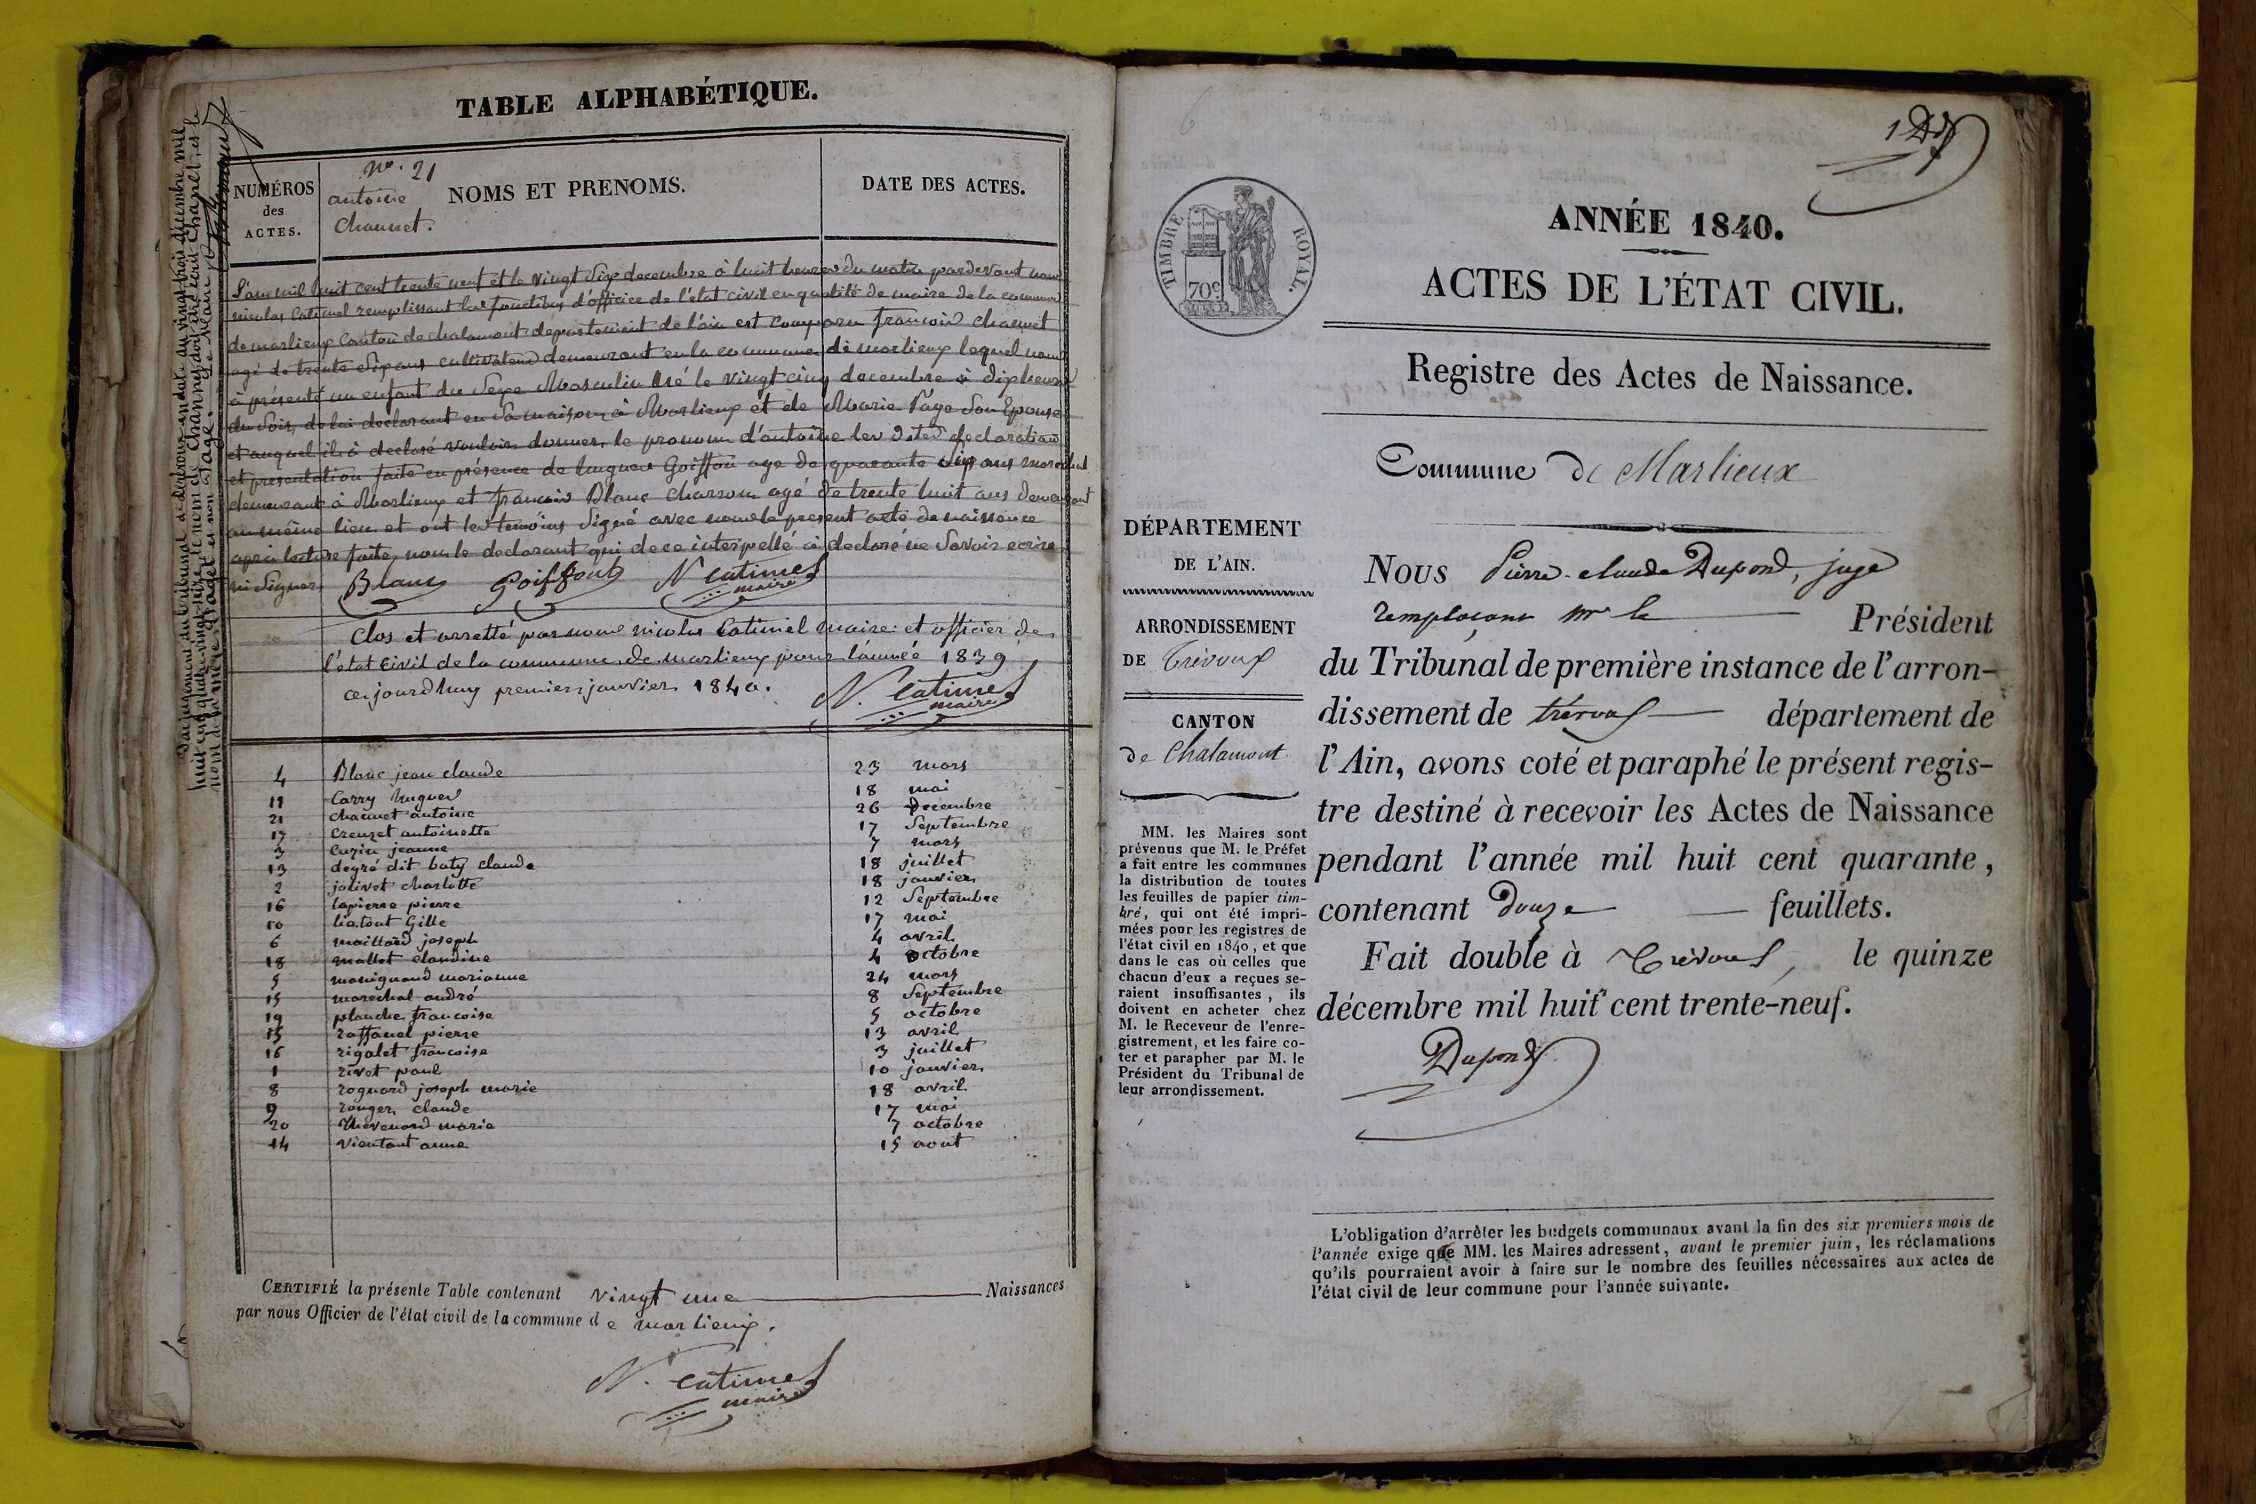 TABLE ALPHABÉTIQUE.
NUMÉROS
des
ACTES.
NOMS ET PRENOMS.
DATE DES ACTES.
n° 21
antoine
chaunet.
L'an mil huit cent trente neuf et le vingt Six decembre à huit heures du matin pardevant nous
nicolas Catimel remplissant les fonctions d'officier de l'état civil en qualité de maire de la commune
de marlieux Canton de chalamont departement de l'ain est comparu francois chaunet
agé de trente Six ans cultivateur demeurant en la commune de marlieux lequel nous
à présenté un enfant du Sexe Masculin Né le vingt cinq decembre à dix heures
du Soir, de lui declarant en Sa maison à Marlieux et de Marie Page Son Epouse
et auquel il à declaré vouloir donner le pronom d'antoine les dites declaration
et presentation faite en présence de hugues Goiffon agé de quarante Six ans marechal
demeurant à Marlieux et francois Blanc charron agé de trente huit ans demeurant
au même lieu et ont les temoins Signé avec nous le present acte de naissance
aprés lecture faite, non le declarant qui de ce interpellé à declaré ne Savoir ecrire
ni Signer Blanc Goiffon N Catimel
maire
Clos et arretté par nous nicolas Catimel maire et officier de
l'état Civil de la commune de marlieux pour l'année 1839
ce jourdhuy premier janvier 1840. N. Catimel
maire
4 Blanc jean claude 23 mars
11 Carry hugues 18 mai
21 chaunet antoine 26 decembre
17 creuzet antoinette 17 Septembre
3 cuzin jeanne 7 mars
13 degré dit baty claude 18 juillet
2 jolivet charlotte 18 janvier
16 lapierre pierre 12 Septembre
10 liatout Gille 17 mai
6 maillard joseph 4 avril
18 mallet claudine 4 octobre
5 manignand marianne 24 mars
15 marechal andré 8 Septembre
19 planche francoise 5 octobre
raffanel pierre 13 avril
rigolet francoise 3 juillet
1 rivet paul 10 janvier
8 rognard joseph marie 18 avril
9 ronger claude 17 mai
20 thevenard marie 7 octobre
14 vieutant anne 15 aout
CERTIFIÉ la présente Table contenant vingt une Naissances
par nous Officier de l'état civil de la commune de marlieux.
N. Catimel
maire
ANNÉE 1840.
ACTES DE L'ÉTAT CIVIL.
Registre des Actes de Naissance.
Commune de Marlieux
TIMBRE ROYAL.
70c
DÉPARTEMENT
DE L'AIN.
ARRONDISSEMENT
DE Trévoux
CANTON
de Chalamont
MM. les Maires sont
prévenus que M. le Préfet
a fait entre les communes
la distribution de toutes
les feuilles de papier tim-
bré, qui ont été impri-
mées pour les registres de
l'état civil en 1840, et que
dans le cas où celles que
chacun d'eux a reçues se-
raient insuffisantes, ils
doivent en acheter chez
M. le Receveur de l'enre-
gistrement, et les faire co-
ter et parapher par M. le
Président du Tribunal de
leur arrondissement.
Nous Pierre-claude Dupond, juge
remplaçant Mr le Président
du Tribunal de première instance de l'arron-
dissement de trévoux département de
l'Ain, avons coté et paraphé le présent regis-
tre destiné à recevoir les Actes de Naissance
pendant l'année mil huit cent quarante,
contenant Douze feuillets.
Fait double à Trévoux, le quinze
décembre mil huit cent trente-neuf.
Dupond
L'obligation d'arrêter les budgets communaux avant la fin des six premiers mois de
l'année exige que MM. les Maires adressent, avant le premier juin, les réclamations
qu'ils pourraient avoir à faire sur le nombre des feuilles nécessaires aux actes de
l'état civil de leur commune pour l'année suivante.